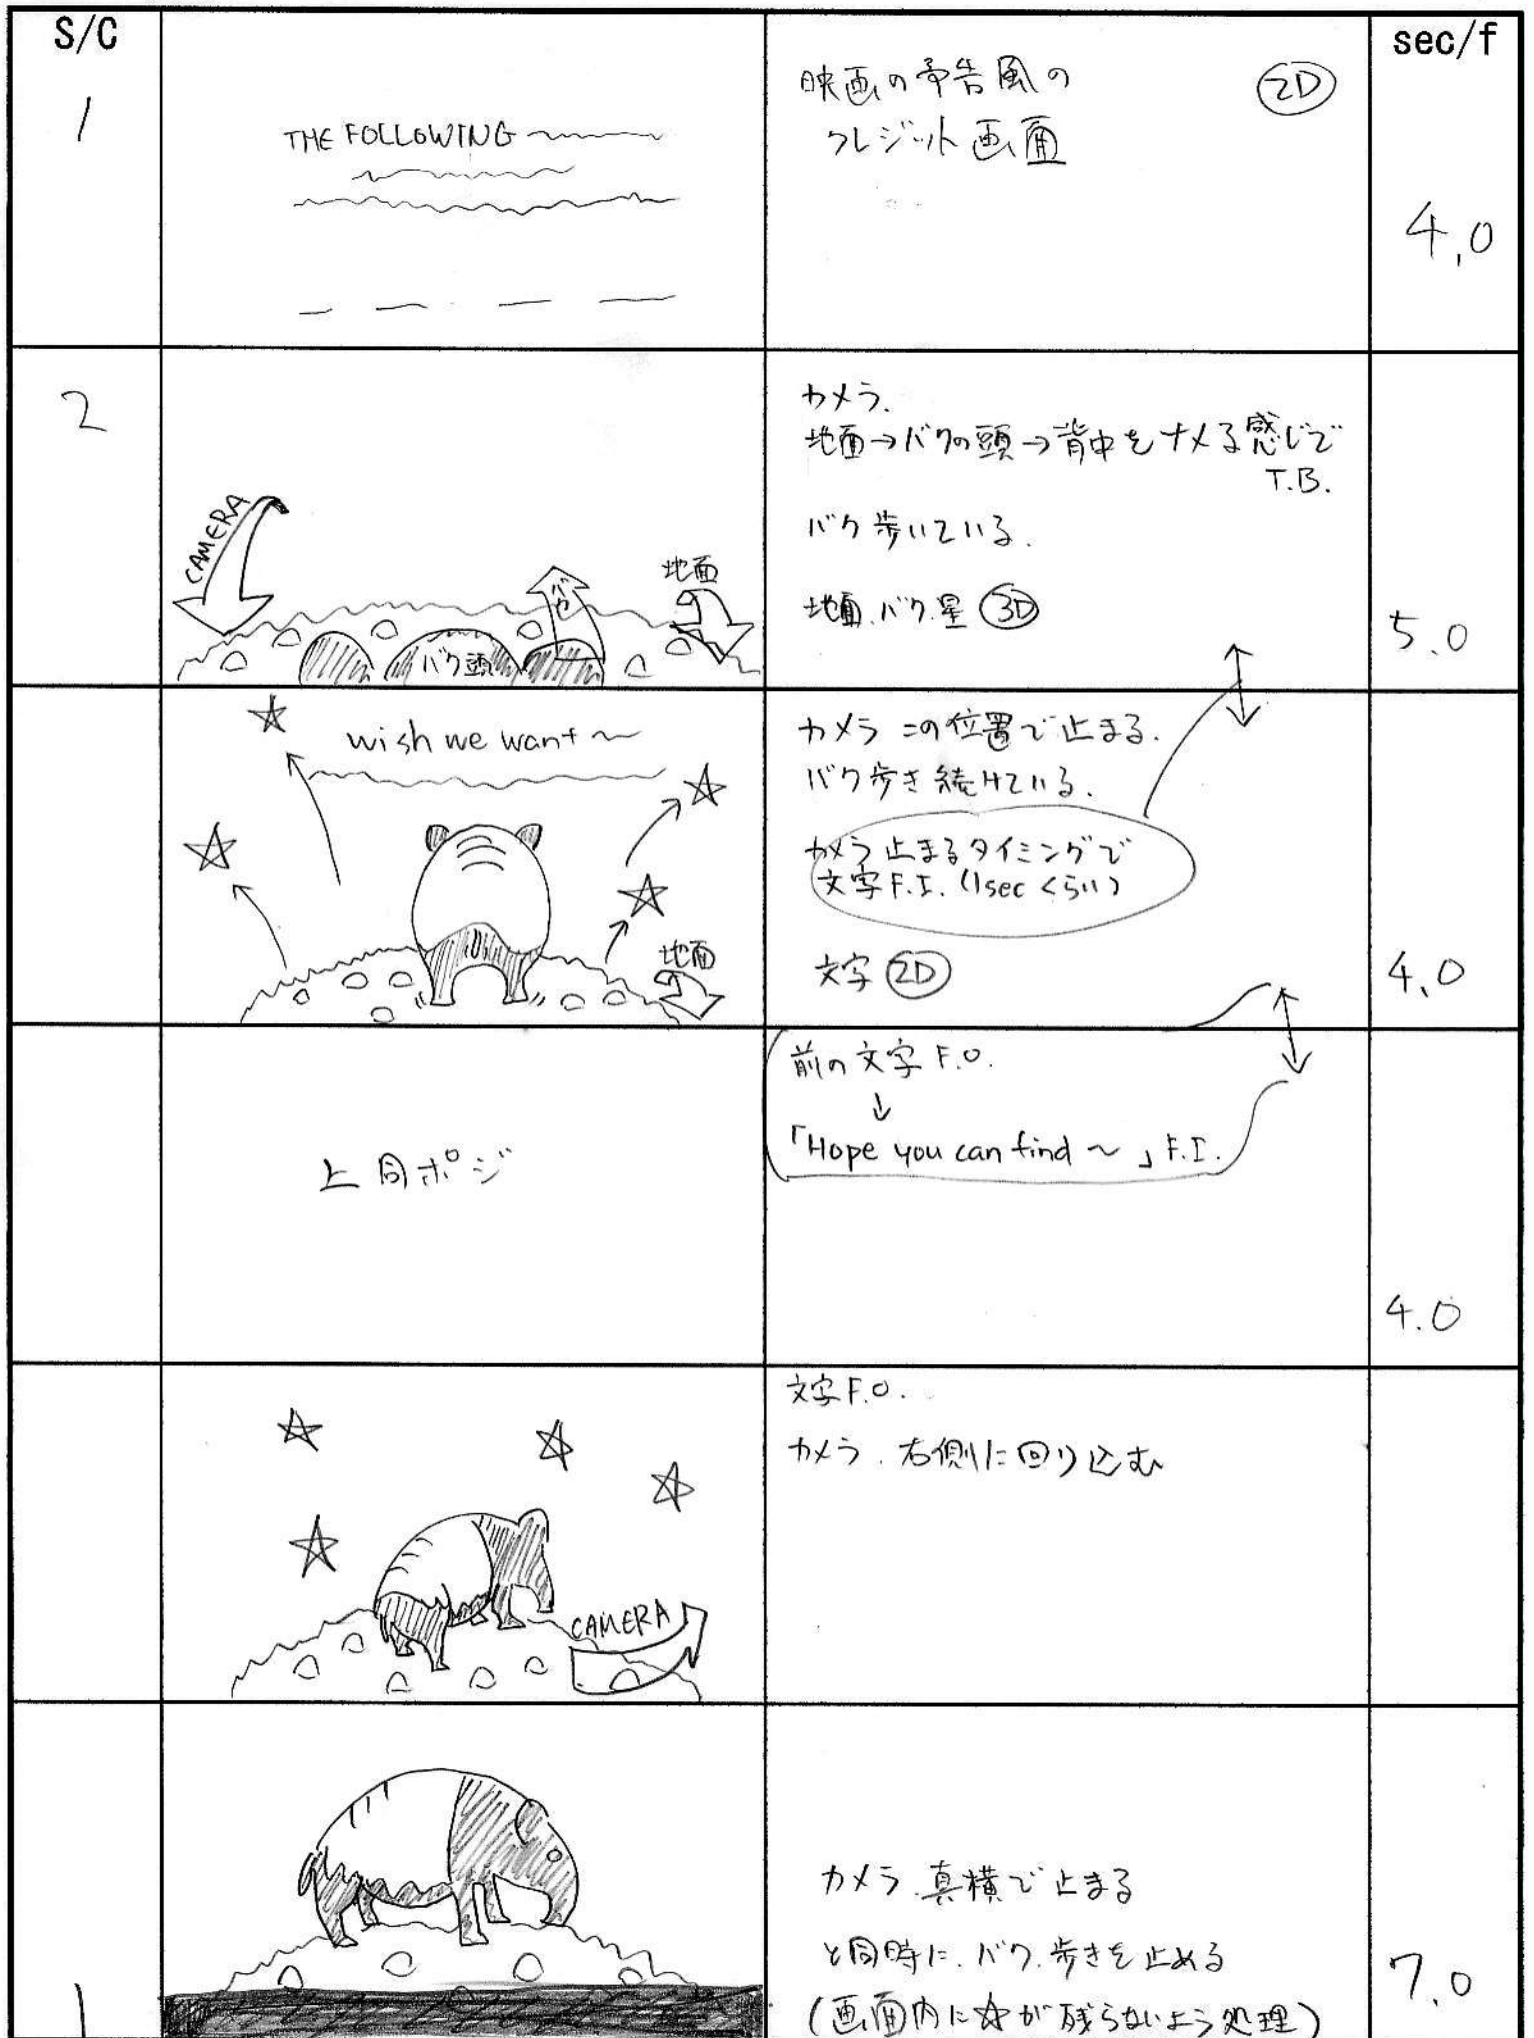 S/C
sec/f
1
THE FOLLOWING
映画の予告風の
クレジット画面
2D
4.0
2
CAMERA
バク
地面
バク頭
カメラ.
地面→バクの頭→背中をナメる感じで
T.B.
バク歩いている.
地面.バク.星 3D
5.0
wish we want〜
地面
カメラ この位置で止まる.
バク歩き続けている.
カメラ止まるタイミングで
文字F.I.(1secくらい)
文字 2D
4.0
上同ポジ
前の文字 F.O.
↓
「Hope you can find 〜」F.I.
4.0
CAMERA
文字F.O.
カメラ.右側に回り込む
カメラ.真横で止まる
と同時に.バク.歩きを止める
(画面内に☆が残らないよう処理)
7.0